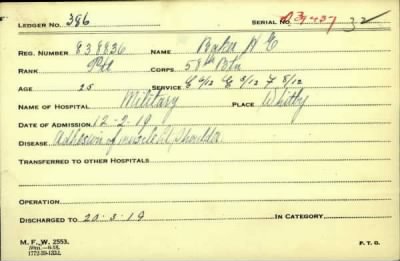 LEDGER No. 386 SERIAL No. 32
REG. NUMBER 838836 NAME Baker H E
RANK Pte CORPS 58th Btn
AGE 25 SERVICE C 6/12 E 3/12 F 8/12
NAME OF HOSPITAL Military PLACE Whitby
DATE OF ADMISSION 12-2-19
DISEASE Adhesion of muscle Rt Shoulder
TRANSFERRED TO OTHER HOSPITALS
OPERATION
DISCHARGED TO 20-3-19 IN CATEGORY
M. F. W. 2553. P. T. O.
1772-39-1332.